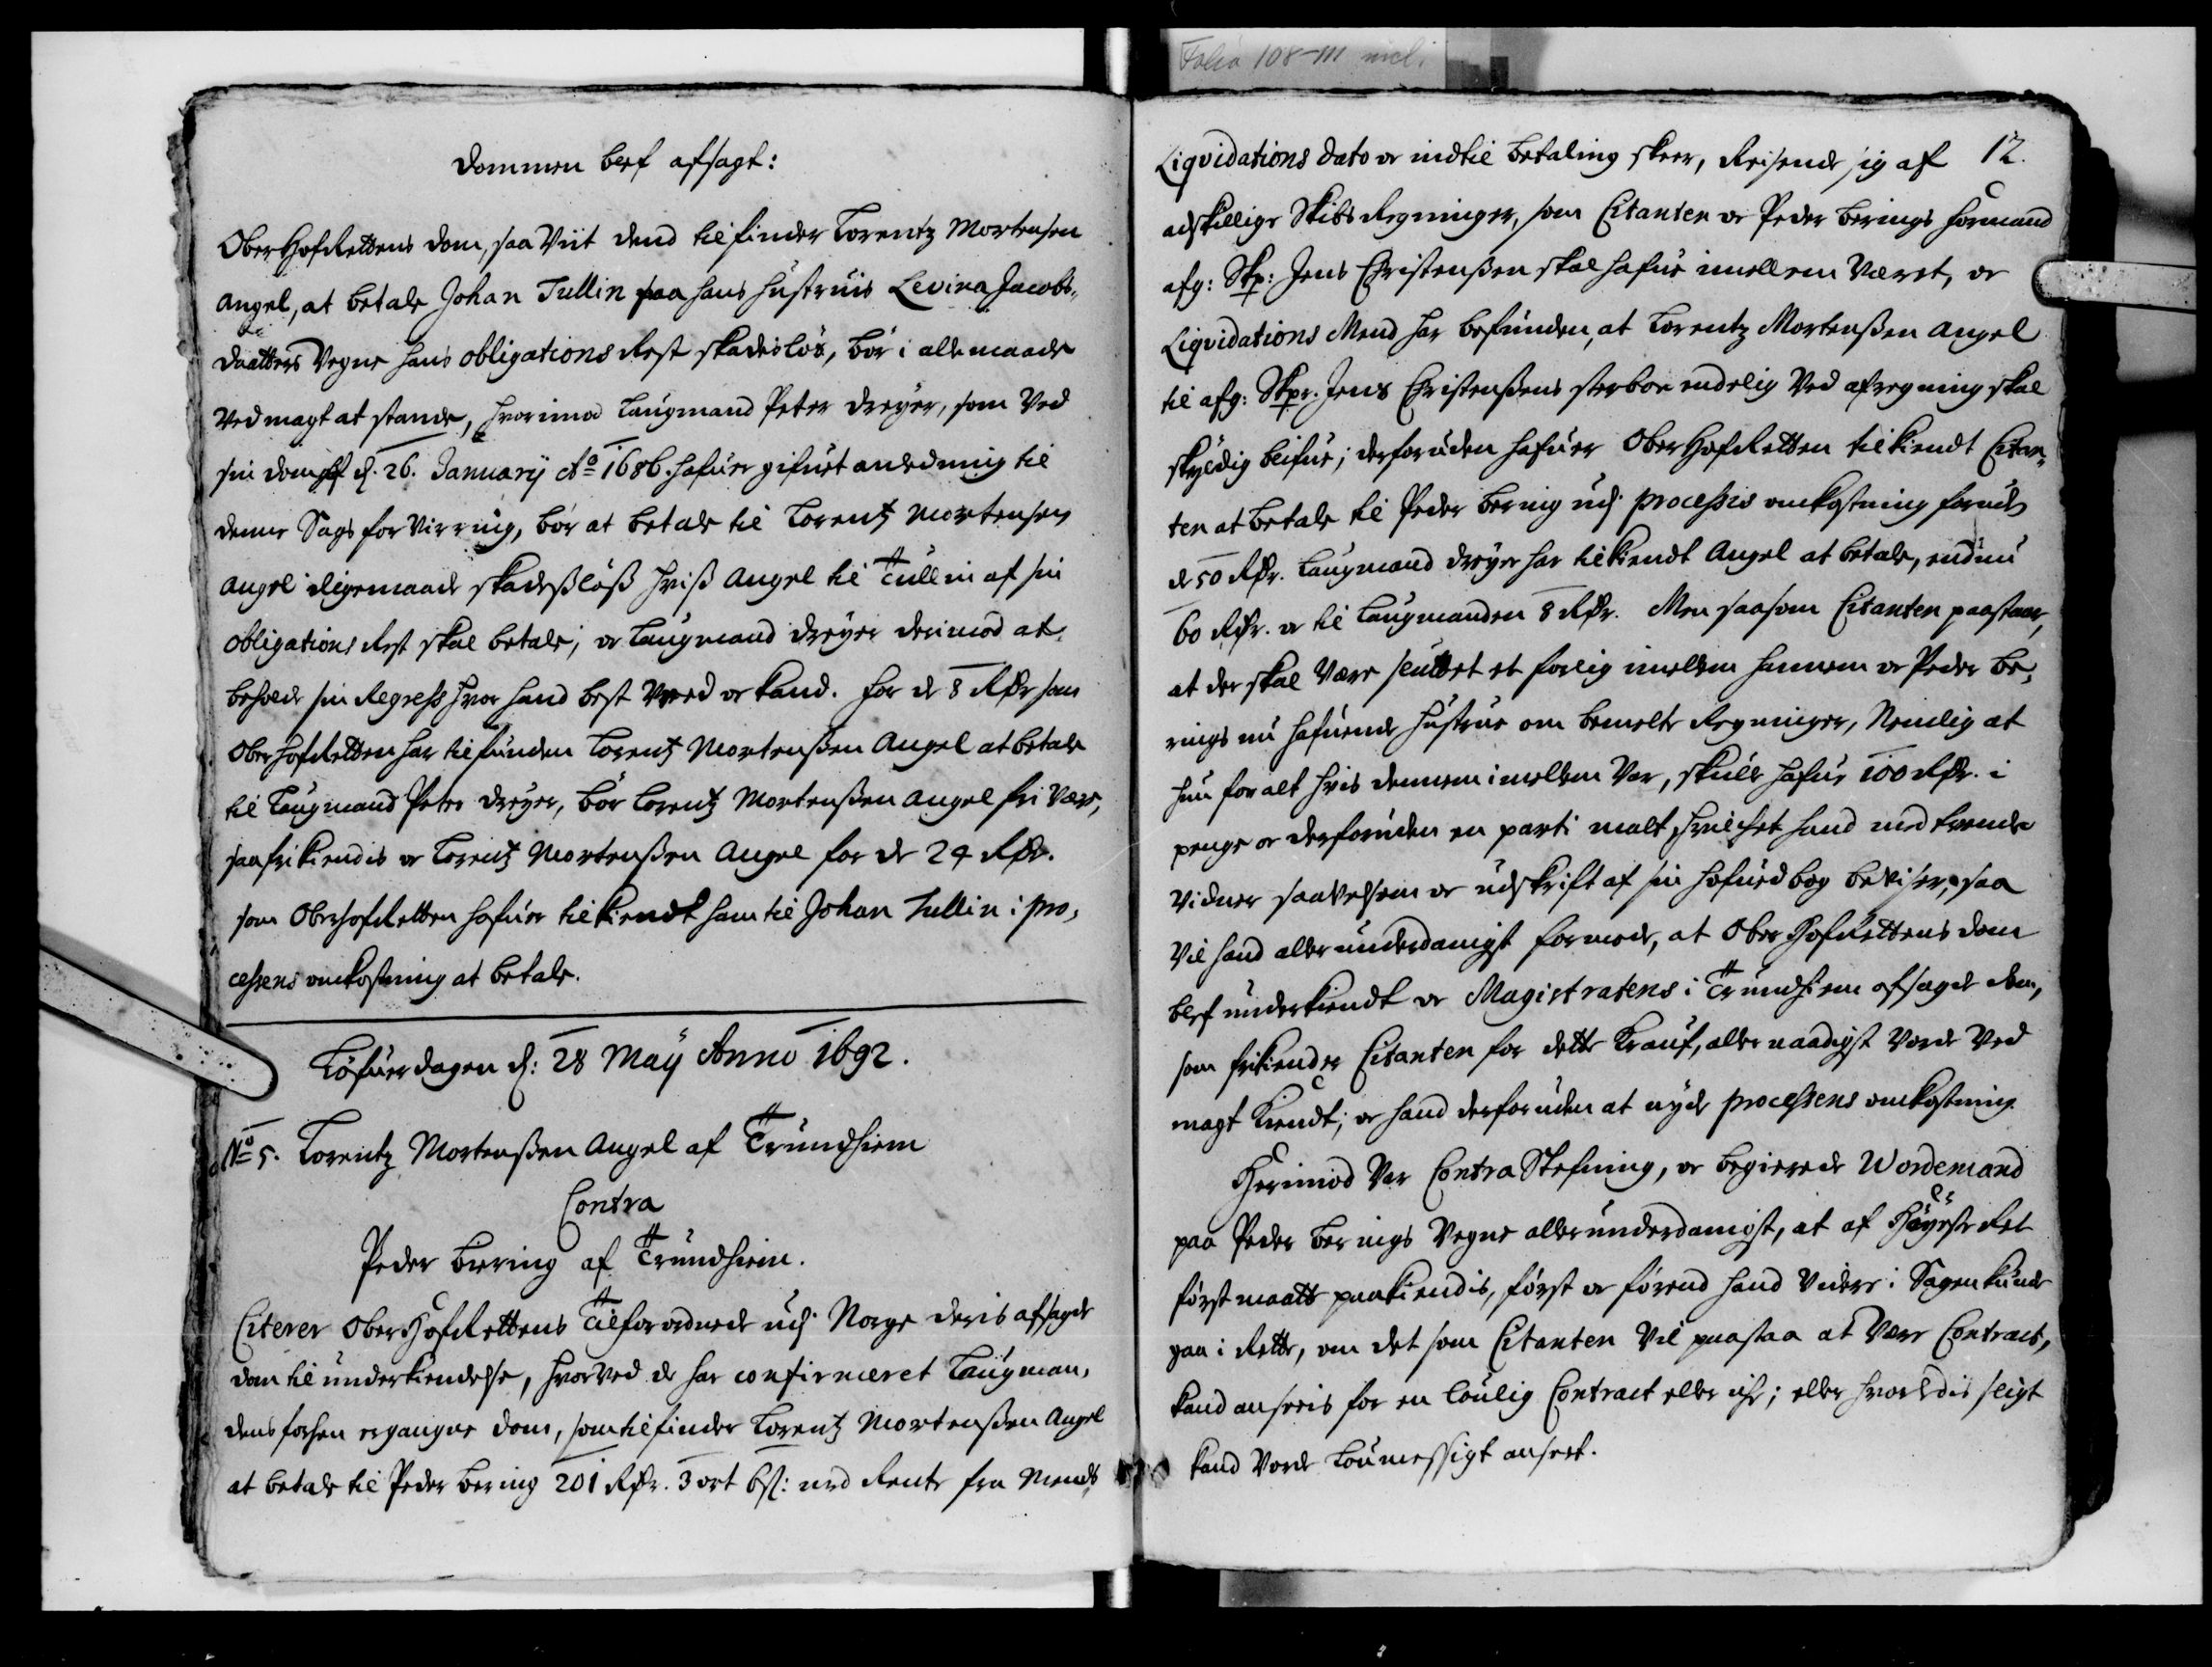 Folio 108-111 incl.
Dommen blef afsagt:
OberHofRettens dom, saa Viit dend tilfinder Lorentz Mortensen
Angel, at betale Johan Tullin paa hans hustruis Levina Jacobs-
daatters Vegne hans obligations Rest skadisløs, bør i alle maade
Ved magt at stande, hvorimod Laugmand Peter Dreyer, som Ved
sin dom af d. 26. Januarij Ao 1686. hafuer gifuet anledning til
denne Sags forVirring, bør at betale til Lorentz Mortensen
Angel i ligemaade skadesløs hvis Angel til Tullin af sin
obligations Rest skal betale; oc Laugmand Dreyer derimod at
beholde sin Regress hvor hand best Veed oc kand. For de 8 Rdr som
OberhofRetten har tilfunden Lorentz Mortenssen Angel at betale
til Laugmand Peter Dreyer, bør Lorentz Mortenssen Angel fri Være,
saa frikiendis oc Lorentz Mortenssen Angel for de 24 Rdr.
som OberhofRetten hafuer tilkiendt ham til Johan Tullin i pro-
cessens omkostning at betale.
Løfuerdagen d: 28 Maij Anno 1692.
No 5. Lorentz Mortenssen Angel af Trundhiem
Contra
Peder Biering af Trundhiem.
Citerer OberHofRettens Tilforordnede udj Norge deris afsagde
dom til underkiendelse, hvorVed de har confirmeret Laugman-
dens forhen ergangne dom, som tilfinder Lorentz Mortenssen Angel
at betale til Peder Bering 201 Rdr. 3 ort 6 s: med Rente fra Mends
12.
Liqvidations dato oc indtil betaling skeer, Reisende sig af
adskillige Skibs Regninger, som Citanten oc Peder Berings formand
afg: Skp: Jens Christenssen skal hafue imellem Været, oc
Liqvidations Mend har befunden, at Lorentz Mortenssen Angel
til afg: Skpr. Jens Christenssens sterboe endelig Ved afregning skal
skyldig blifue; desforuden hafuer OberHofRetten tilkiendt Citan-
ten at betale til Peder Bering udj processis omkostning foruden
de 50 Rdr. Laugmand Dreyer har tilkiendt Angel at betale, endnu
60 Rdr. oc til Laugmanden 8 Rdr. Men saasom Citanten paastaar,
at der skal Være sluttet et forlig imellem hannem oc Peder Be-
rings nu hafuende hustrue om bemelte Regninger, Nemlig at
hun for alt hvis dennem imellem Var, skulle hafue 100 Rdr. i
penge oc desforuden en parti malt, hvilchet hand med tvende
Vidner saaVelsom oc udskrift af sin hofuedbog beviser, saa
Vil hand allerunderdanigst formode, at Ober HofRettens dom
blef underkiendt oc Magistratens i Trundhiem afsagde dom,
som frikiender Citanten for dette Krauf, aller naadigst Vorde Ved
magt kiendt; oc hand desforuden at nyde processens omkostning.
Herimod Var Contra Stefning, oc begierede Wordemand
paa Peder Berings Vegne allerunderdanigst, at af Høyeste Ret
først maatte paakiendis, først oc førend hand Videre i Sagen kunde
gaa i Rette, om det som Citanten Vil paastaa at Være Contract,
kand ansees for en loulig Contract eller ej; eller hvorledis sligt
kand Vorde Loumessigt anseet.